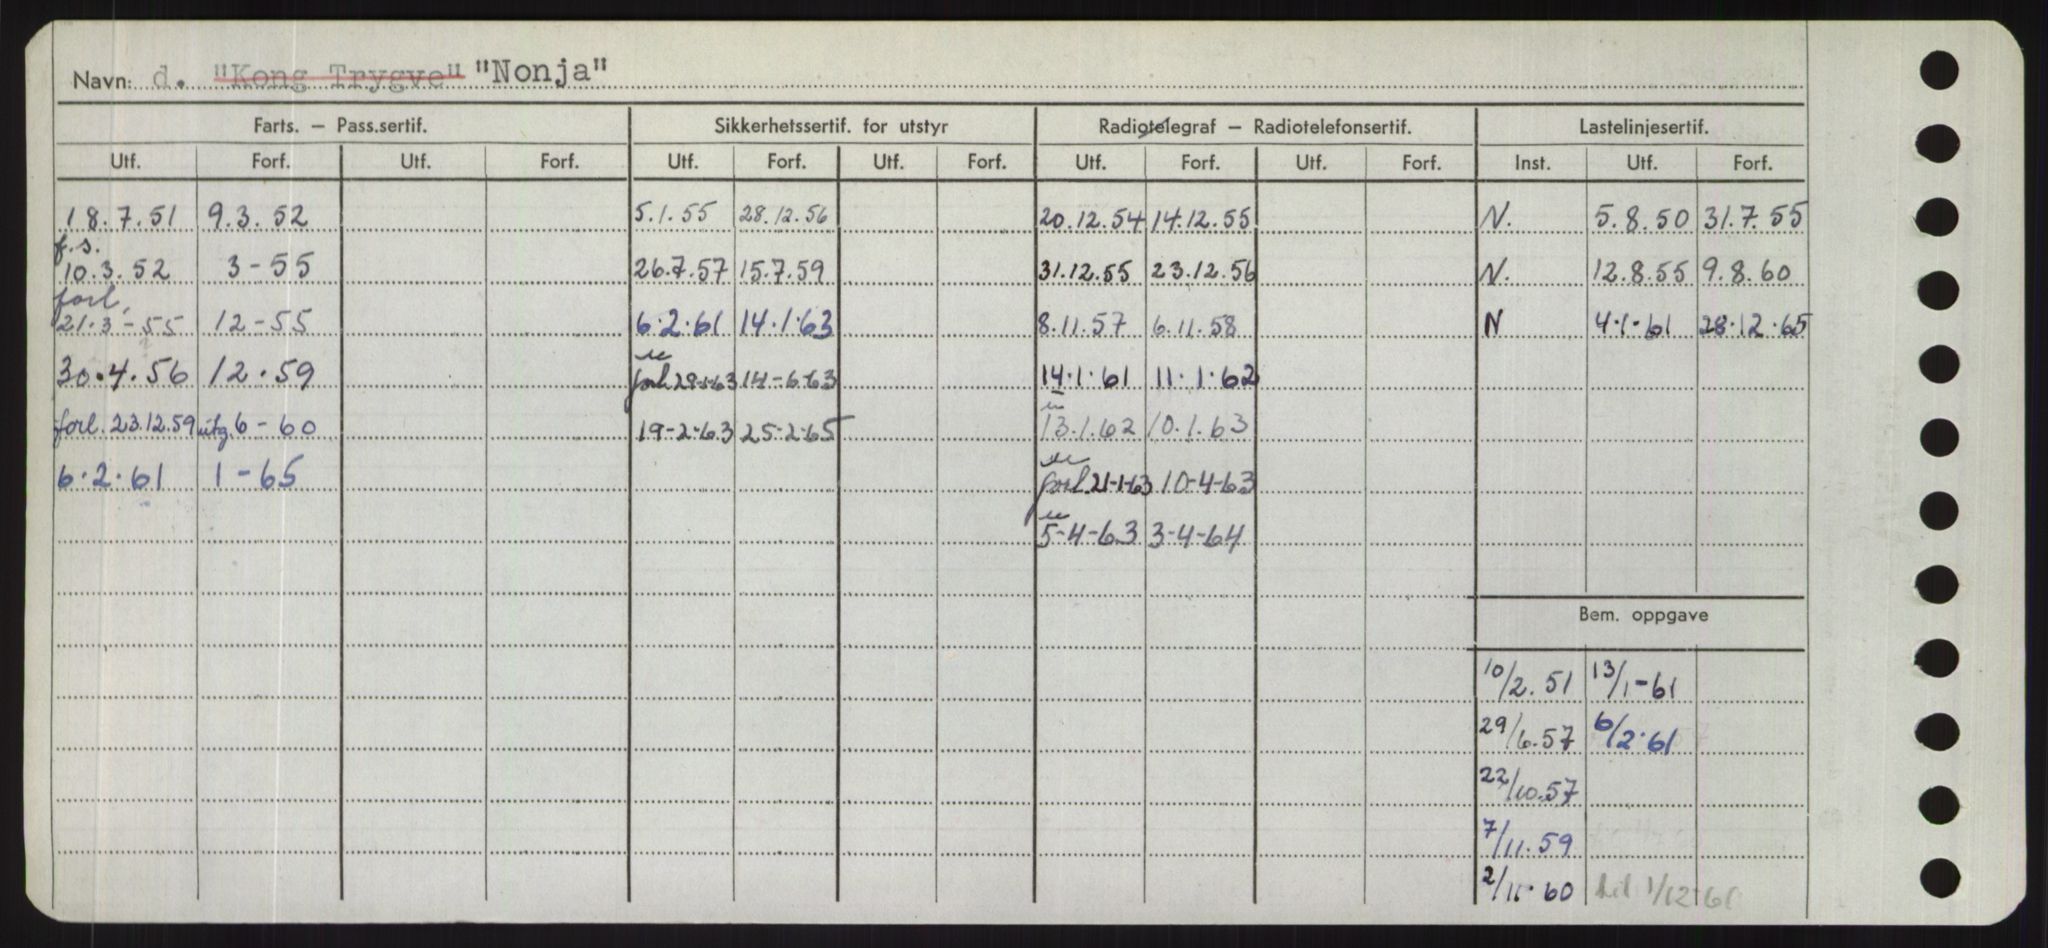 Navn: d. "Kong Trygve" "Nonja"
Farts. — Pass.sertif. Sikkerhetssertif. for utstyr Radiotelegraf — Radiotelefonsertif. Lastelinjesertif.
Utf. Forf. Utf. Forf. Utf. Forf. Utf. Forf. Utf. Forf. Utf. Forf. Inst. Utf. Forf.
18.7.51 9.3.52 5.1.55 28.12.56 20.12.54 14.12.55 N. 5.8.50 31.7.55
f.s.
10.3.52 3-55 26.7.57 15.7.59 31.12.55 23.12.56 N. 12.8.55 9.8.60
forl.
21.3-55 12-55 6.2.61 14.1.63 8.11.57 6.11.58 N 4.1.61 28.12.65
30.4.56 12.59 forl 29-1-63 14-6-63 14.1.61 11.1.62
forl. 23.12.59 utg. 6-60 19-2-63 25-2-65 13.1.62 10.1.63
6.2.61 1-65 forl. 21-1-63 10-4-63
5-4-63 3-4-64
Bem. oppgave
10/2.51 13/1-61
29/6.57 6/2.61
22/10.57
7/11.59
2/11-60 1/12.61